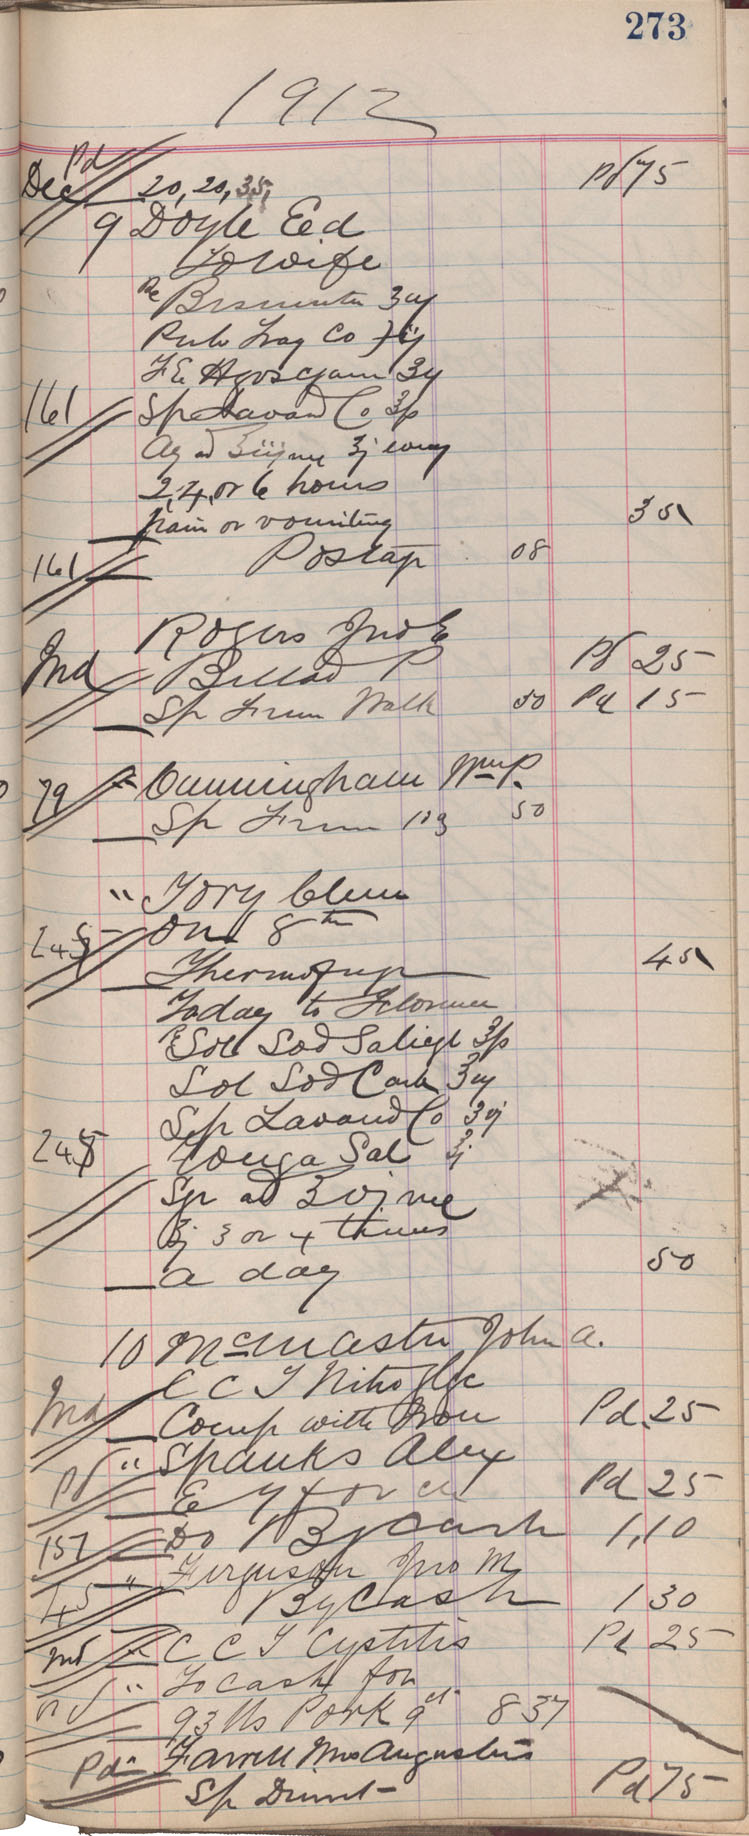 273
1912
Dec Pd 20, 20, 35, Pd 75
9 Doyle Ed
To Wife
Rx Bismuth ʒij
Pulv Trag Co ʒij
F E Hyoscyam ʒij
161 Sp Lavand Co
Aq ad ʒj every
2, 4, or 6 hours
pain or vomiting 35
161 Postage 08
Rogers Jno E
Ind Bellad P Pd 25
Sp From Walk 50 Pd 15
79 " Cunningham Wm P.
Sp From 113 50
" Tory Clem
245 on 8th
45
Today to Florence
Rx Sol Sod Salicyl
Sol Sod Carb ʒij
Sp Lavand Co
245 Tonga Sal ʒj
ad
ʒj 3 or 4 times
a day 50
10 McMaster John A.
Ind C C T Nitro Glyc
Comp with Iron Pd. 25
Pd " Spanks Alex
Pd 25
157 Do By Cash 1,10
45 " Ferguson Jno M
By Cash 1 30
Ind " C C T Cystitis Pd 25
Pd " To Cash for
93 lbs Pork 9ct 8 37
Pd " Farrell Mrs Augustus
Sp Pd 75